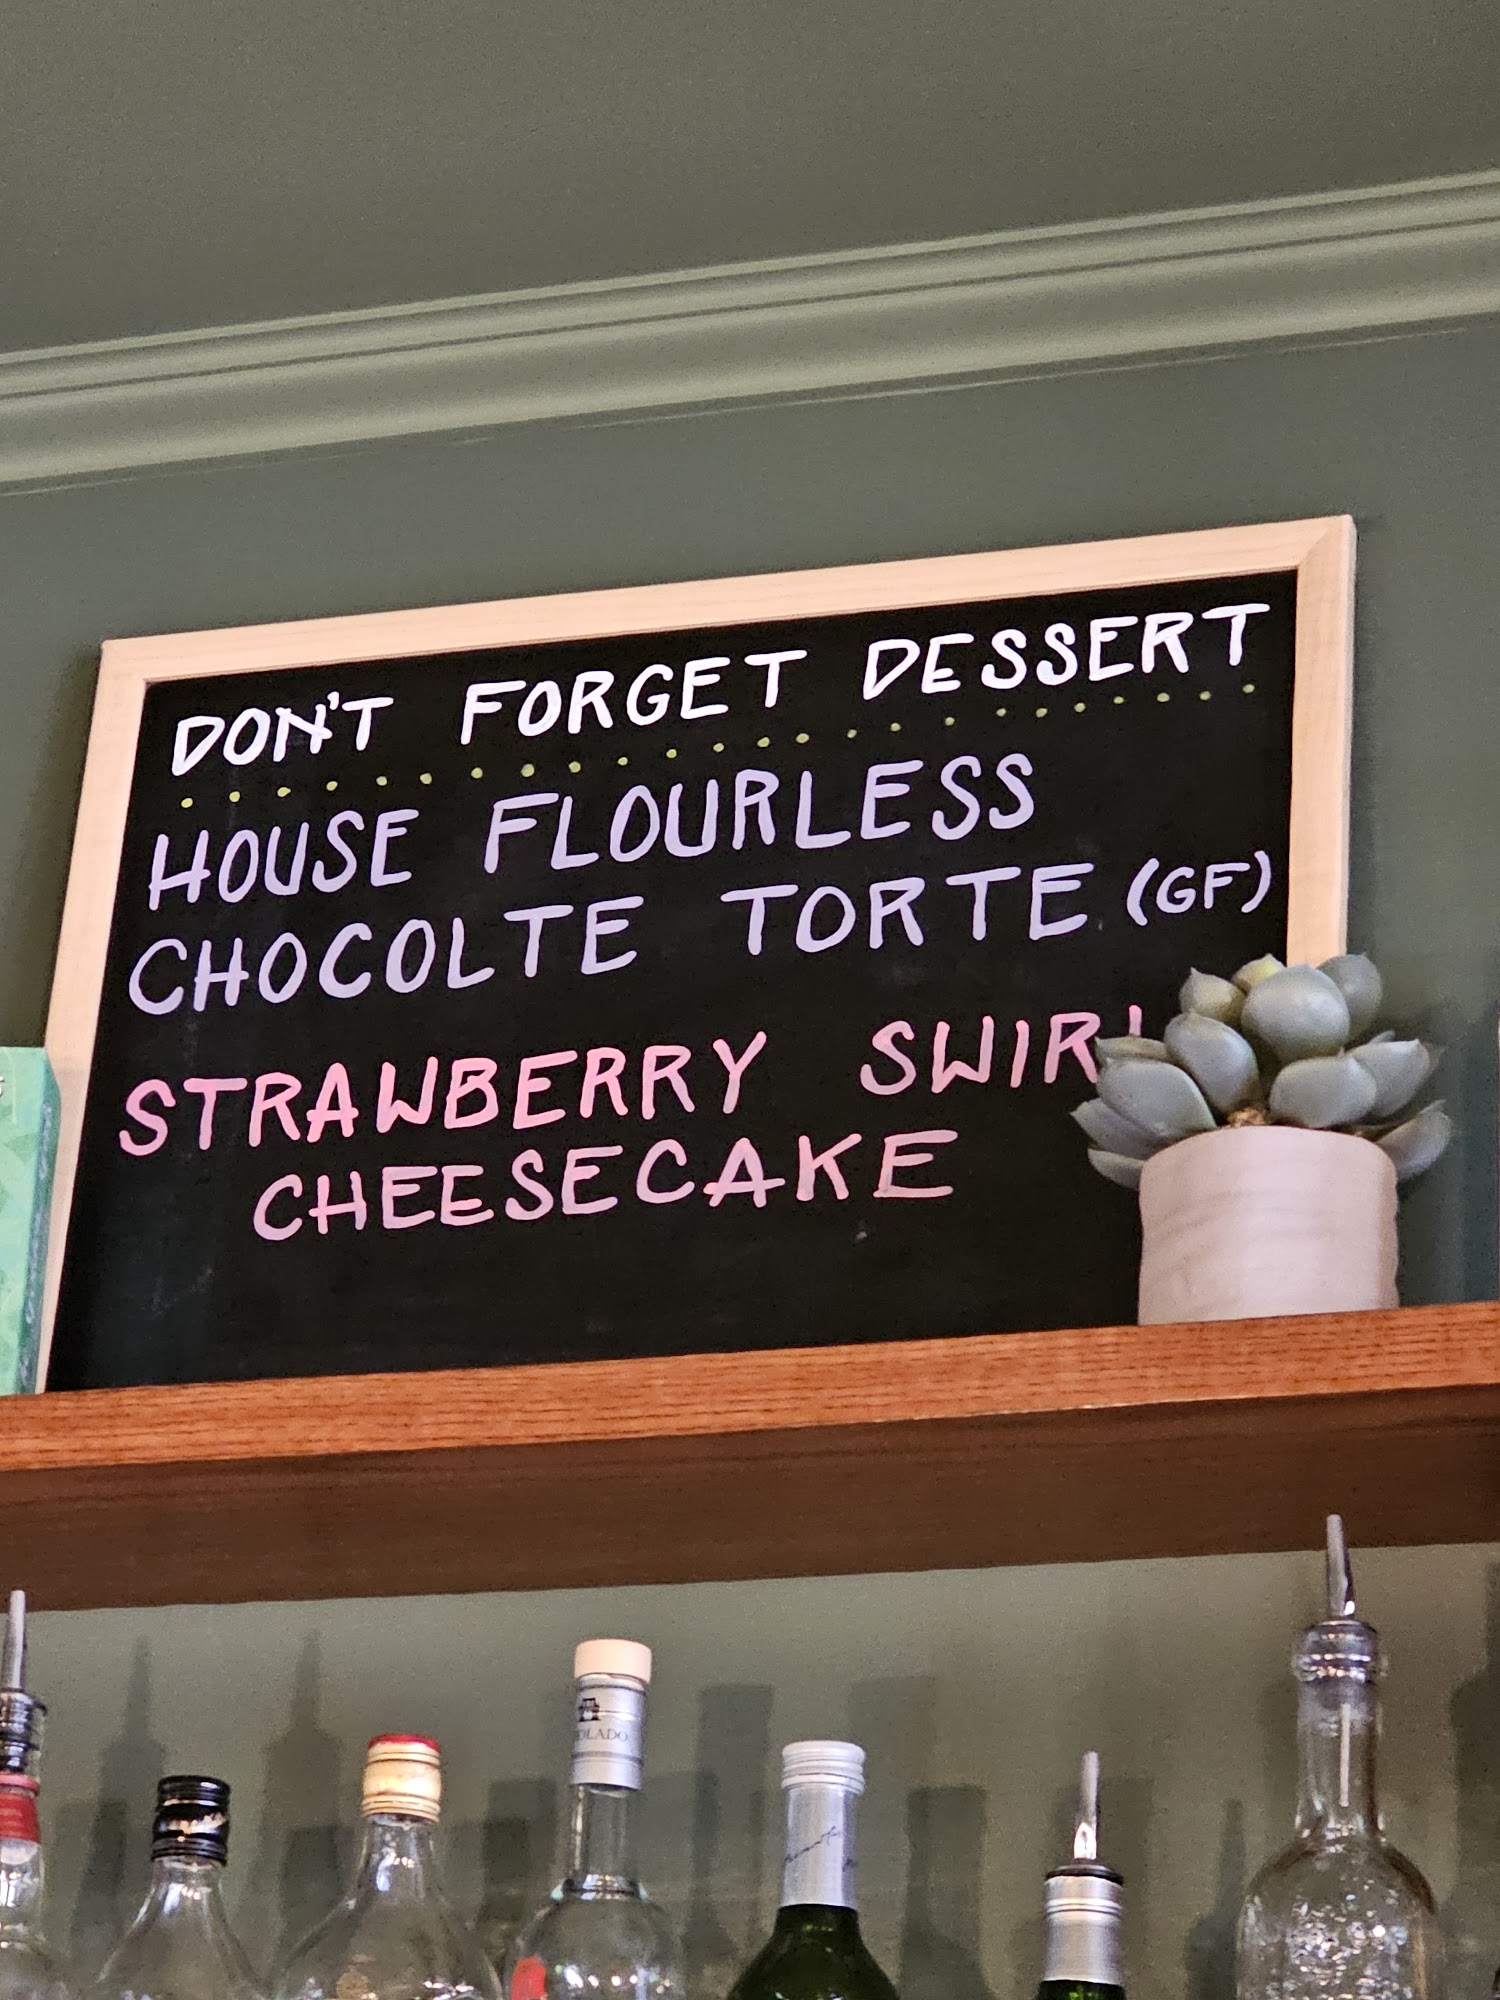 DON'T FORGET DESSERT
HOUSE FLOURLESS
CHOCOLTE TORTE (GF)
STRAWBERRY SWIRL
CHEESECAKE